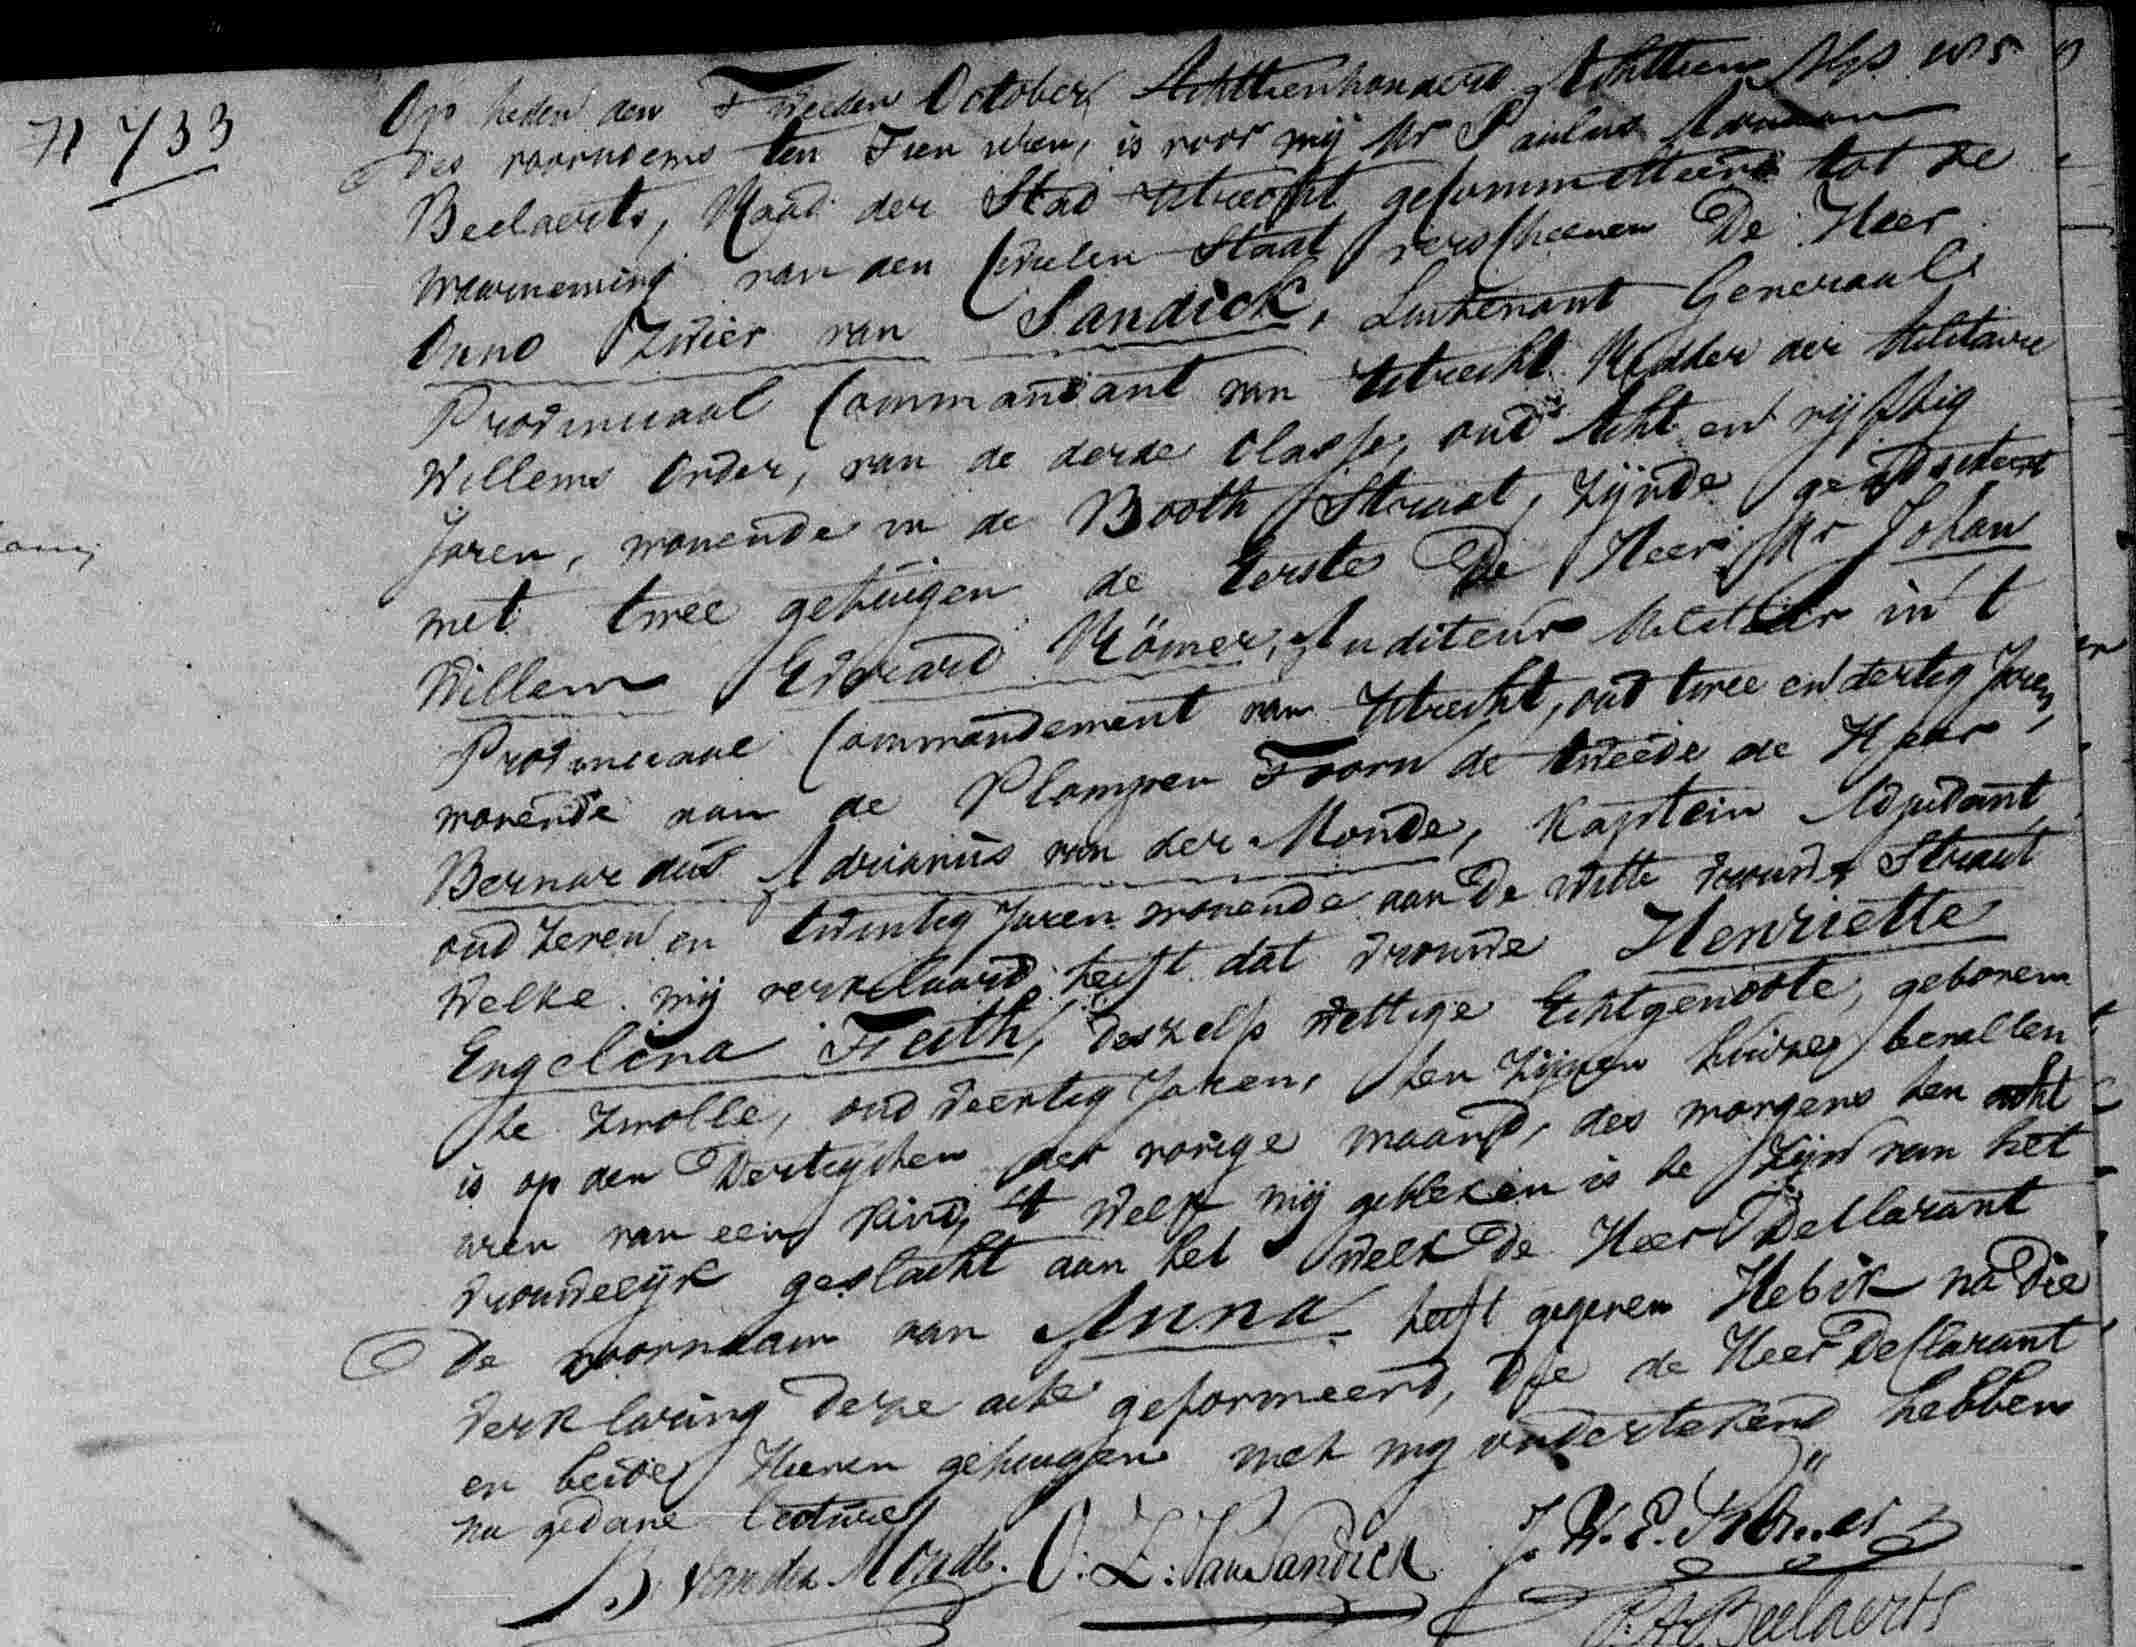 N 733
Op heden den Tweeden October Achttienhonderd Achttien
des voormiddens ten Tien uren, is voor mij Mr Paulus Adriaan
Beelaerts, Raad der Stad Utrecht gecommitteerd tot de
waarneming van den Civielen Staat verscheenen De Heer
Onno Zwier van Sandick, Luitenant Generaal
Provinciaal Commandant van Utrecht Ridder der Militaire
Willems Order, van de derde Classe, oud Acht en vijftig
Jaren, wonende in de Booth Straat, zijnde geadsisteerd
met twee getuigen de Eerste De Heer Mr Johan
Willem Everard Römer, Auditeur Militair in 't
Provinciaal Commandement van Utrecht, oud twee en dertig Jaren,
wonende aan de Plompen Toorn de tweede de Heer
Bernardus Adrianus van der Monde, Kaptein Adjudant
oud zeven en twintig Jaren wonende aan De witte vrouwe Straat
Welke mij verklaard heeft dat vrouwe Henriette
Engelina Feith, deszelfs wettige Echtgenoote, geboren
te Zwolle, oud veertig Jaren, ten zijnen huize bevallen
is op den Dertigsten der vorige maand, des morgens ten acht
uren van een kind, 't welk mij gebleken is te zijn van het
vrouwelijk geslacht aan het welk De Heer Declarant
De voornaam van Anna heeft gegeven Heb ik na die
Verklaring deze acte geformeerd, Die de Heer Declarant
en beide Heeren getuigen met mij ondertekend hebben
na gedane lecture
B van der Monde. O: Z: Van Sandick J. W. E. Römer
P. A. Beelaerts